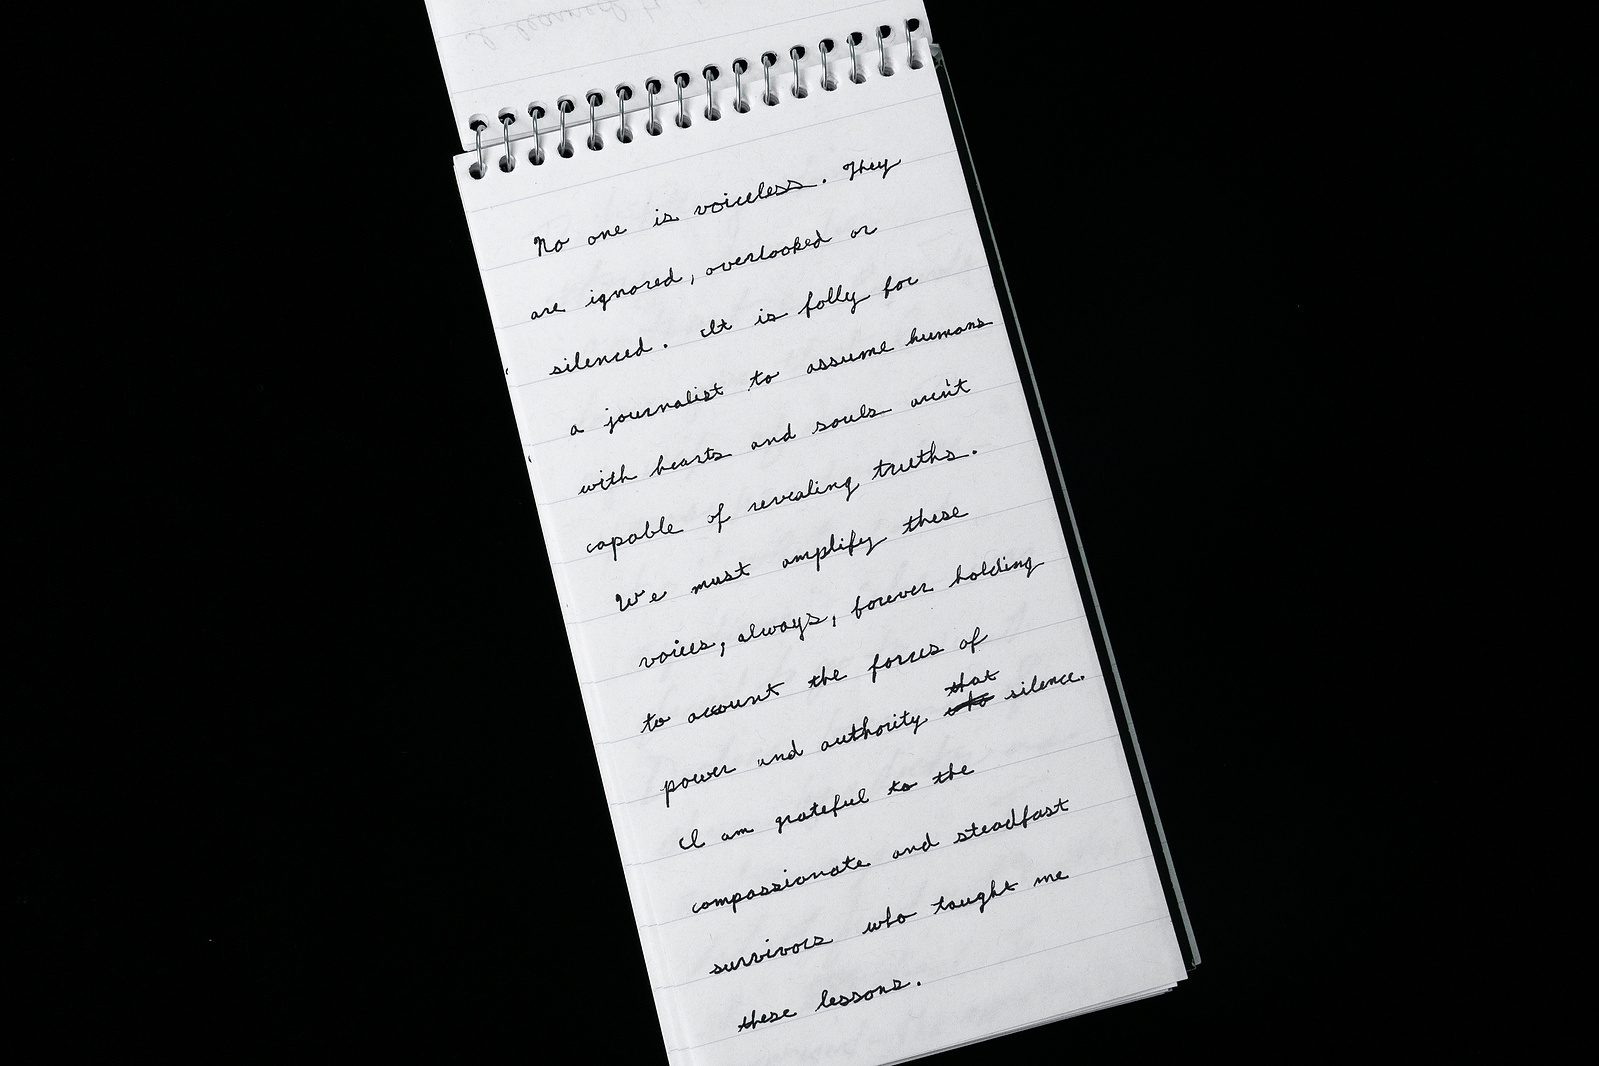 No one is voiceless. They
are ignored, overlooked or
silenced. It is folly for
a journalist to assume humans
with hearts and souls aren't
capable of revealing truths.
We must amplify these
voices, always, forever holding
to account the forces of
that
power and authority who silence.
I am grateful to the
compassionate and steadfast
survivors who taught me
these lessons.